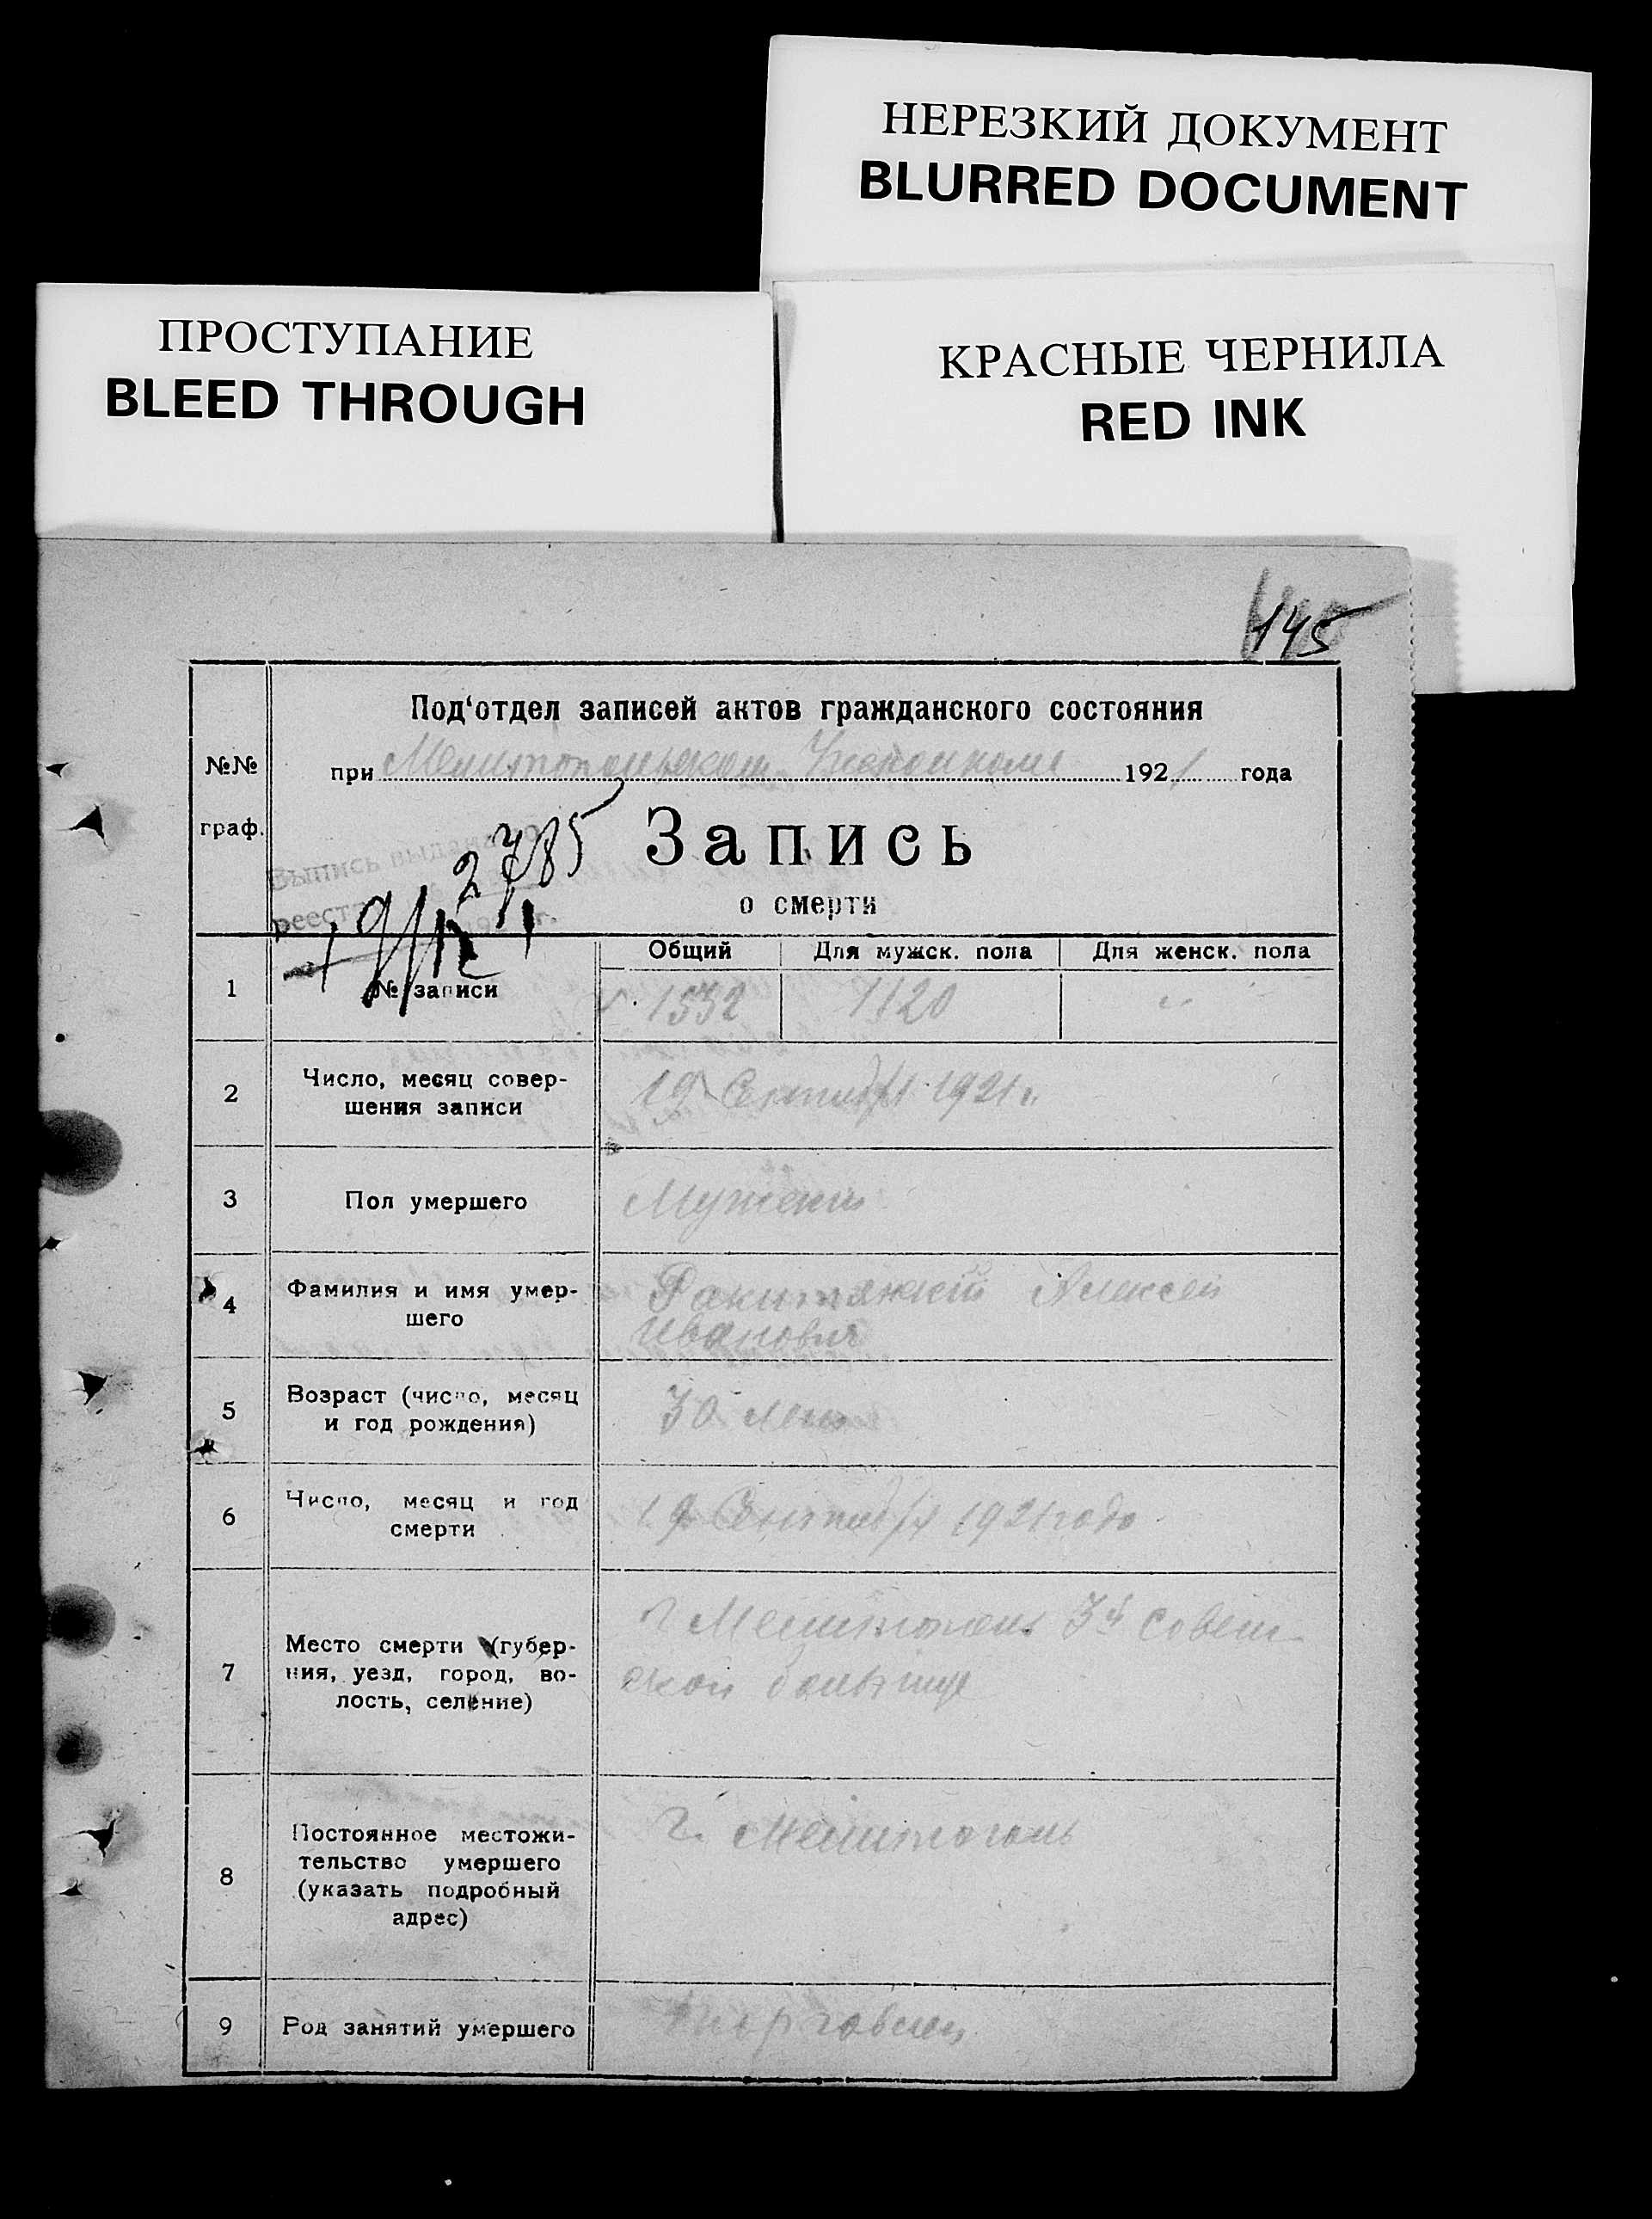 НЕРЕЗКИЙ ДОКУМЕНТ
BLURRED DOCUMENT
ПРОСТУПАНИЕ
BLEED THROUGH
КРАСНЫЕ ЧЕРНИЛА
RED INK
145
Под'отдел записей актов гражданского состояния
№№ граф.
при Мелитопольском 1921 года
2785
Запись
о смерти
Выпись выдана
реестр
Общий Для мужск. пола Для женск. пола
1 № записи 1532 1120 "
2 Число, месяц совер-
шения записи
19 Сентября 1921 г.
3 Пол умершего Мужской
4 Фамилия и имя умер-
шего
Алексей
Иванович
5 Возраст (число, месяц
и год рождения)
30 лет
6 Число, месяц и год
смерти
19 Сентября 1921 года
7 Место смерти (губер-
ния, уезд, город, во-
лость, селение)
г Мелитополь 3й Совет
ской больнице
8 Постоянное местожи-
тельство умершего
(указать подробный
адрес)
г. Мелитополь
9 Род занятий умершего